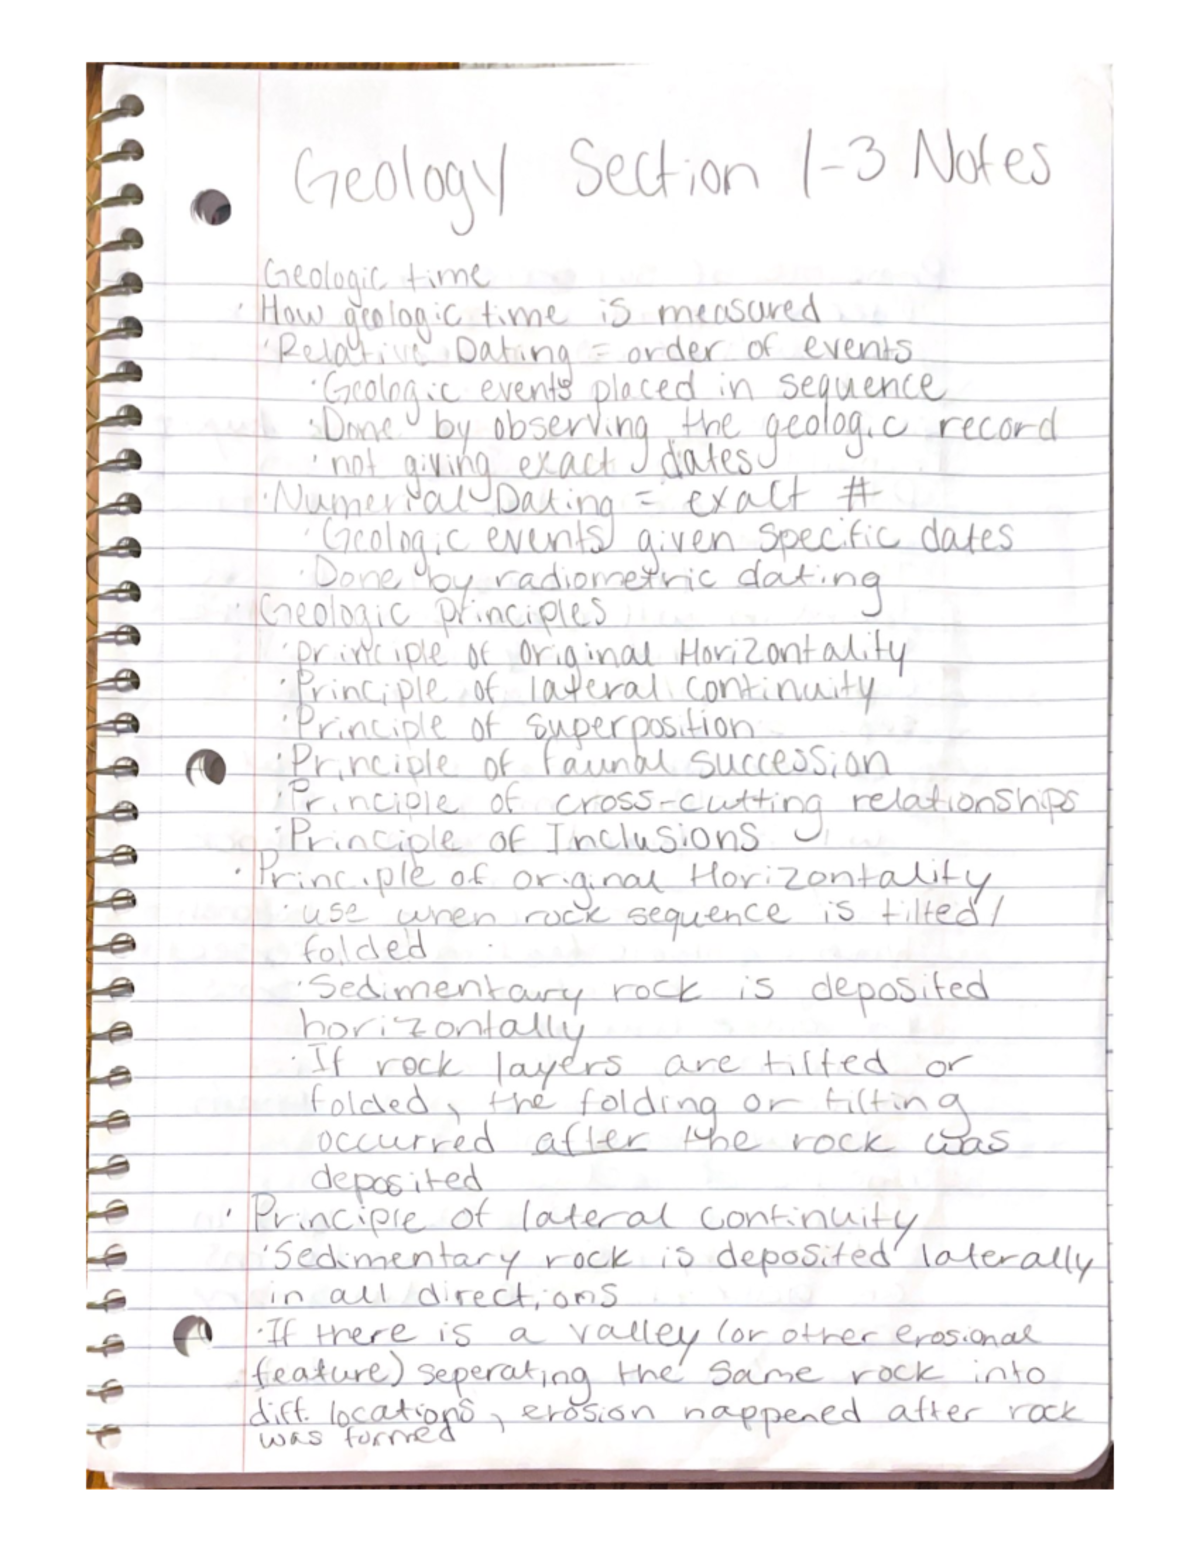 Geology Section 1-3 Notes
Geologic time
· How geologic time is measured
· Relative Dating = order of events
· Geologic events placed in sequence
· Done by observing the geologic record
· not giving exact dates
· Numerical Dating = exact #
· Geologic events given specific dates
· Done by radiometric dating
· Geologic principles
· principle of original Horizontality
· Principle of lateral continuity
· Principle of superposition
· Principle of faunal succession
· Principle of cross-cutting relationships
· Principle of Inclusions
· Principle of original Horizontality
· use when rock sequence is tilted/
folded
· Sedimentary rock is deposited
horizontally
· If rock layers are tilted or
folded, the folding or tilting
occurred after the rock was
deposited
· Principle of lateral continuity
· Sedimentary rock is deposited laterally
in all directions
· If there is a valley (or other erosional
feature) seperating the same rock into
diff. locations, erosion happened after rock
was formed